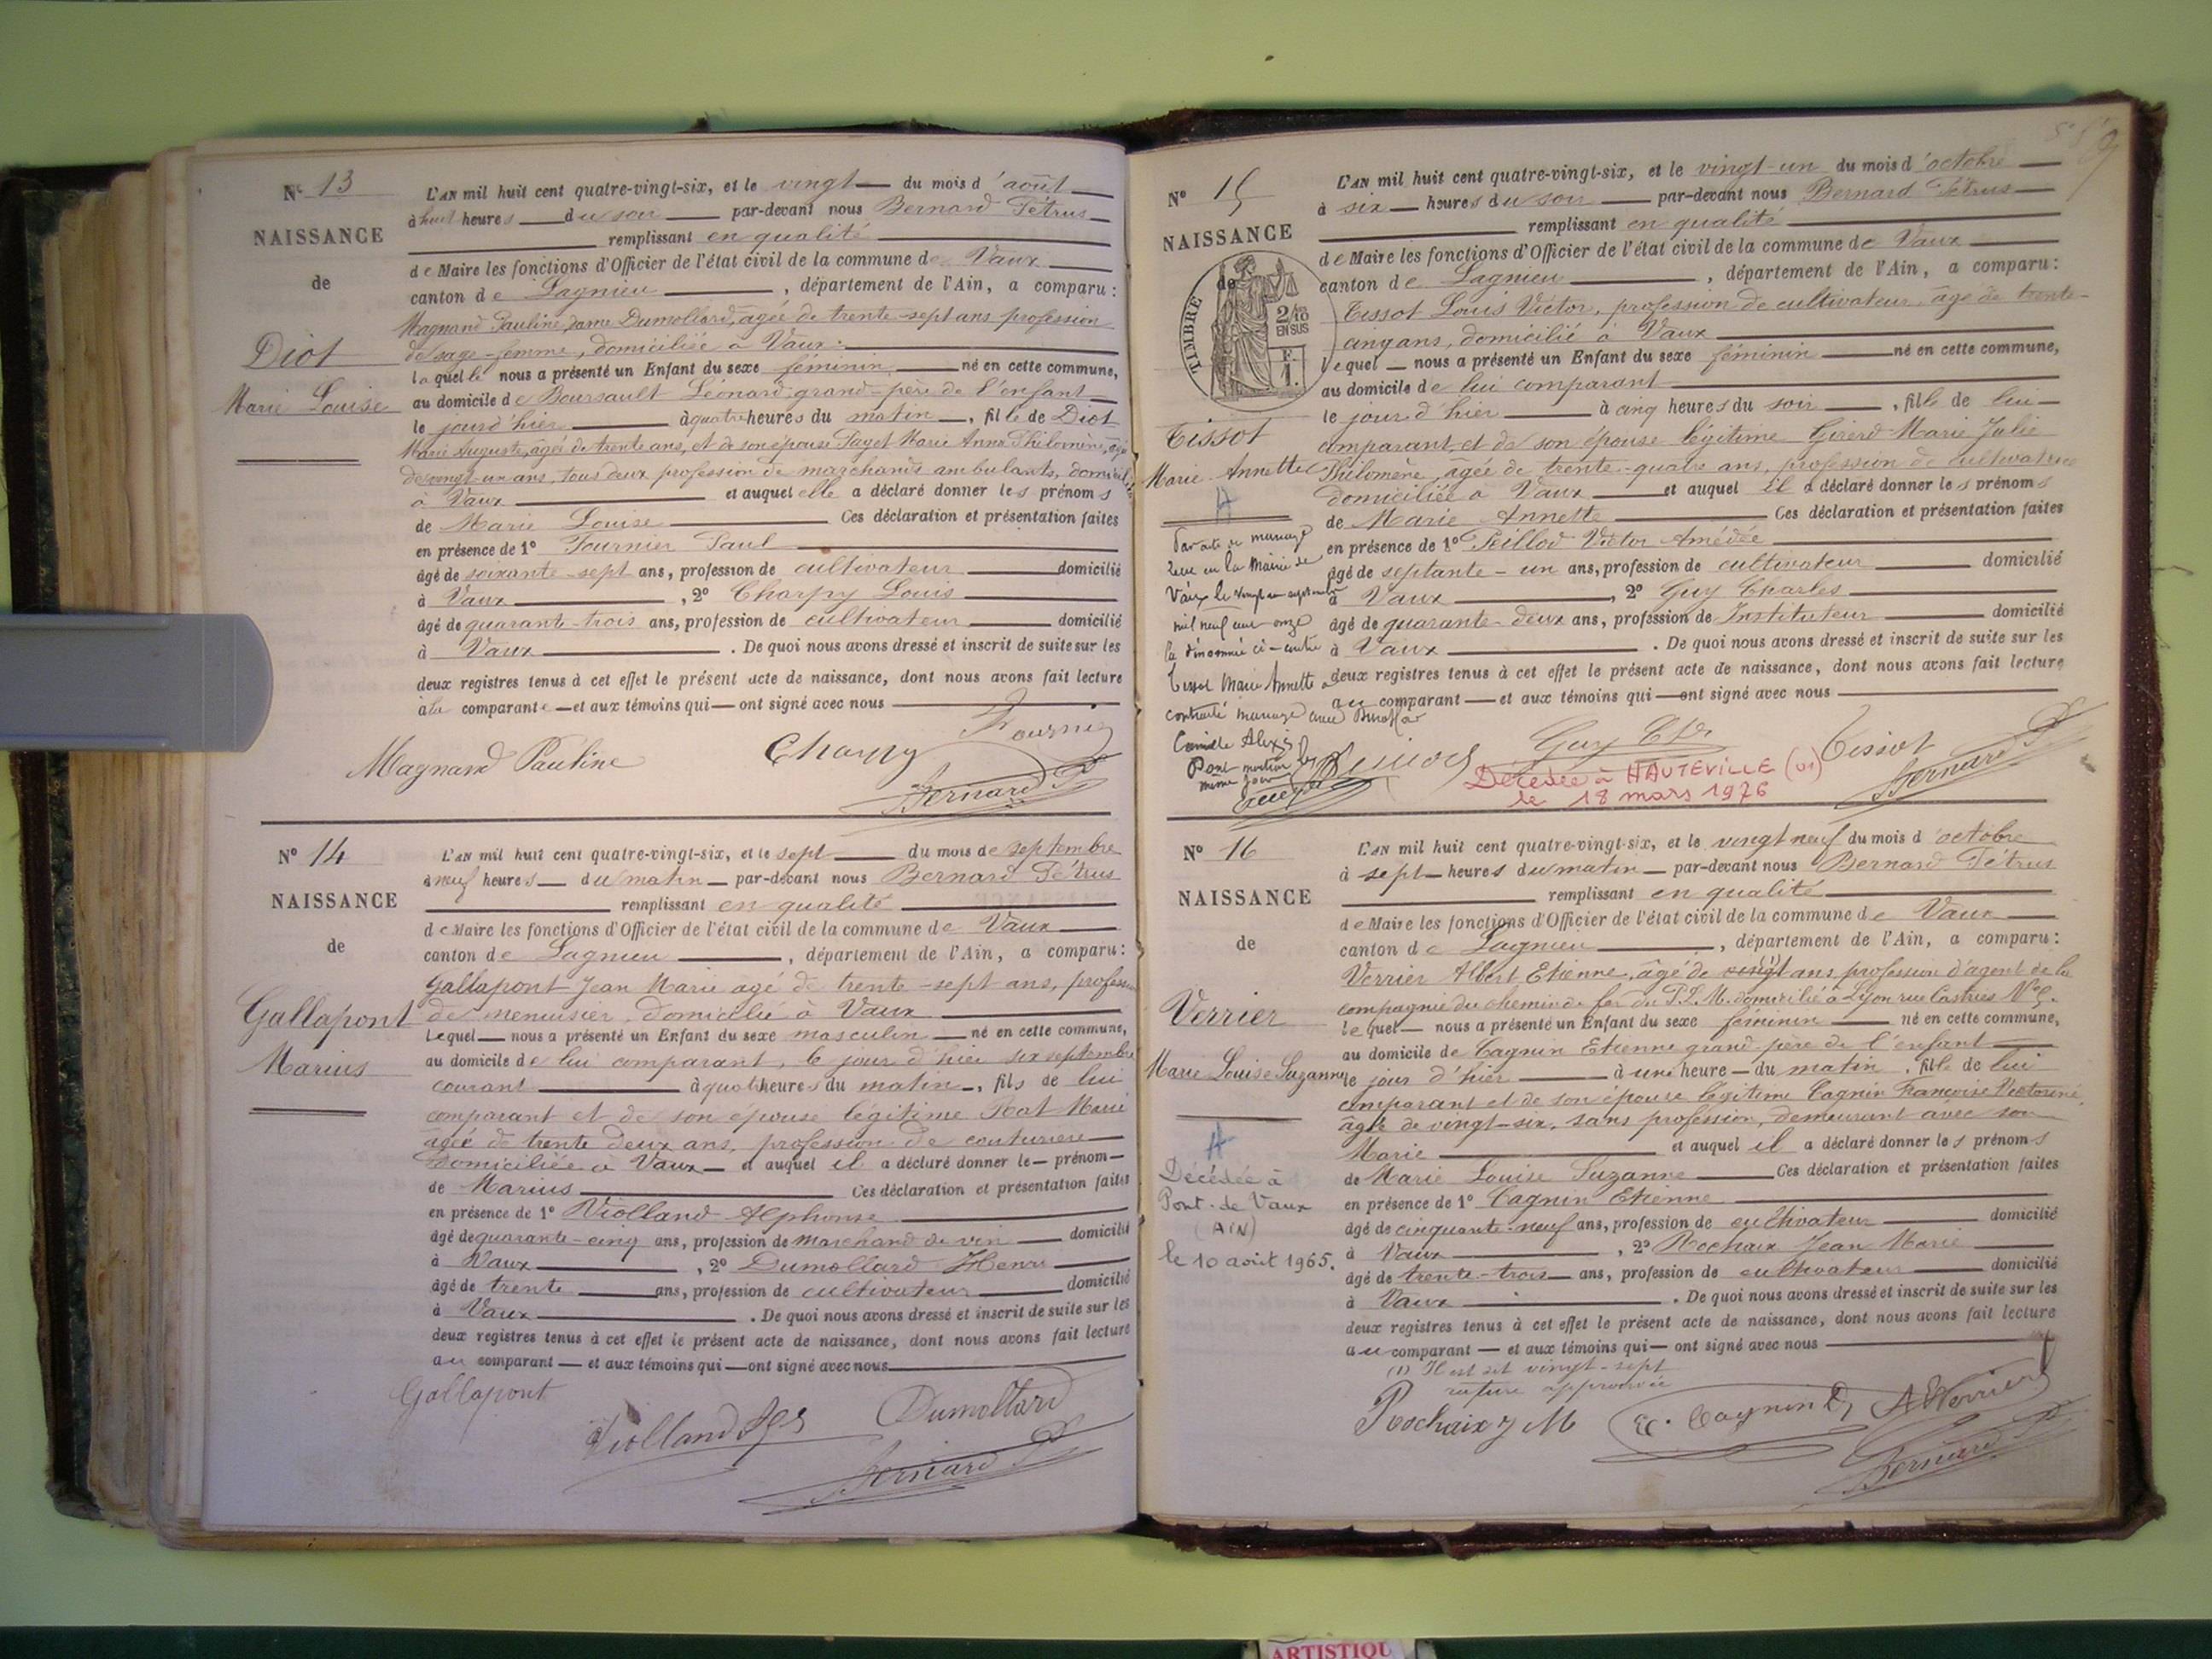 N° 13
NAISSANCE
de
Diot
Marie Louise
L'AN mil huit cent quatre-vingt-six, et le vingt du mois d'août
à huit heures du soir par-devant nous Bernard Pétrus
remplissant en qualité
de Maire les fonctions d'Officier de l'état civil de la commune de Vaux
canton de Lagnieu, département de l'Ain, a comparu:
Magnand Pauline dame Dumollard, âgée de trente-sept ans profession
de sage-femme, domiciliée à Vaux:
laquelle nous a présenté un Enfant du sexe féminin né en cette commune,
au domicile de Boursault Léonard grand-père de l'enfant
le jour d'hier à quatre heures du matin, fille de Diot
Marie Auguste, âgé de trente ans, et de son épouse Paget Marie Anna Philomène, âgée
de vingt-un ans, tous deux profession de marchands ambulants, domiciliés
à Vaux et auquel elle a déclaré donner les prénoms
de Marie Louise Ces déclaration et présentation faites
en présence de 1° Fournier Paul
âgé de soixante-sept ans, profession de cultivateur domicilié
à Vaux, 2° Charpy Louis
âgé de quarante-trois ans, profession de cultivateur domicilié
à Vaux. De quoi nous avons dressé et inscrit de suite sur les
deux registres tenus à cet effet le présent acte de naissance, dont nous avons fait lecture
à la comparante et aux témoins qui ont signé avec nous
Fournier
Magnand Pauline Charpy
Bernard P
N° 14
NAISSANCE
de
Gallapont
Marius
L'AN mil huit cent quatre-vingt-six, et le sept du mois de septembre
à neuf heures du matin par-devant nous Bernard Pétrus
remplissant en qualité
de Maire les fonctions d'Officier de l'état civil de la commune de Vaux
canton de Lagnieu, département de l'Ain, a comparu:
Gallapont Jean Marie agé de trente-sept ans, profession
de menuisier domicilié à Vaux
Lequel nous a présenté un Enfant du sexe masculin né en cette commune,
au domicile de lui comparant, le jour d'hier six septembre
courant à quatre heures du matin, fils de lui
comparant et de son épouse légitime Rat Marie
agée de trente deux ans, profession de couturiere
domiciliée à Vaux et auquel il a déclaré donner le prénom
de Marius Ces déclaration et présentation faites
en présence de 1° Violland Alphonse
âgé de quarante-cinq ans, profession de marchand de vin domicilié
à Vaux, 2° Dumollard Henri
âgé de trente ans, profession de cultivateur domicilié
à Vaux. De quoi nous avons dressé et inscrit de suite sur les
deux registres tenus à cet effet le présent acte de naissance, dont nous avons fait lecture
au comparant et aux témoins qui ont signé avec nous
Gallapont
Violland Dumollard
Bernard P
N° 15
NAISSANCE
de
TIMBRE
2/10
EN SUS
F.
1.
Tissot
Marie Annette
A
L'AN mil huit cent quatre-vingt-six, et le vingt-un du mois d'octobre
à six heures du soir par-devant nous Bernard Pétrus
remplissant en qualité
de Maire les fonctions d'Officier de l'état civil de la commune de Vaux
canton de Lagnieu, département de l'Ain, a comparu:
Tissot Louis Victor, profession de cultivateur, âgé de trente-
cinq ans, domicilié à Vaux
lequel nous a présenté un Enfant du sexe féminin né en cette commune,
au domicile de lui comparant
le jour d'hier à cinq heures du soir, fille de lui
comparant, et de son épouse légitime Girerd Marie Julie
Philomène, âgée de trente-quatre ans, profession de cultivatrice
domiciliée à Vaux et auquel il a déclaré donner les prénoms
de Marie Annette Ces déclaration et présentation faites
en présence de 1° Peillod Victor Amédée
âgé de septante-un ans, profession de cultivateur domicilié
à Vaux, 2° Guy Charles
âgé de quarante-deux ans, profession de Instituteur domicilié
à Vaux. De quoi nous avons dressé et inscrit de suite sur les
deux registres tenus à cet effet le présent acte de naissance, dont nous avons fait lecture
au comparant et aux témoins qui ont signé avec nous
Par acte de mariage
reçu en la Mairie de
Vaux le vingt un septembre
mil neuf cent onze
la dénommée ci-contre
Tissot Marie Annette a
contracté mariage avec
Camille Alexis
Dont mention le
même jour
Guy Tissot
Bernard P
Décédée à HAUTEVILLE (01)
le 18 mars 1976
N° 16
NAISSANCE
de
Verrier
Marie Louise Suzanne
A
Décédée à
Pont-de-Vaux
(AIN)
le 10 août 1965.
L'AN mil huit cent quatre-vingt-six, et le vingt neuf du mois d'octobre
à sept heures du matin par-devant nous Bernard Pétrus
remplissant en qualité
de Maire les fonctions d'Officier de l'état civil de la commune de Vaux
canton de Lagnieu, département de l'Ain, a comparu:
Verrier Albert Etienne, âgé de vingt (1) ans, profession d'agent de la
compagnie du chemin de fer du P.L.M. domicilié à Lyon rue Castries N° 5.
lequel nous a présenté un Enfant du sexe féminin né en cette commune,
au domicile de Cagnin Etienne grand-père de l'enfant
le jour d'hier à une heure du matin, fille de lui
comparant et de son épouse légitime Cagnin Françoise Victorine,
âgée de vingt-six, sans profession, demeurant avec son
Marie et auquel il a déclaré donner les prénoms
de Marie Louise Suzanne Ces déclaration et présentation faites
en présence de 1° Cagnin Etienne
âgé de cinquante-neuf ans, profession de cultivateur domicilié
à Vaux, 2° Rochaix Jean Marie
âgé de trente-trois ans, profession de cultivateur domicilié
à Vaux. De quoi nous avons dressé et inscrit de suite sur les
deux registres tenus à cet effet le présent acte de naissance, dont nous avons fait lecture
au comparant et aux témoins qui ont signé avec nous
(1) Il est dit vingt-sept
rature approuvée
Rochaix J M E. Cagnin A E Verrier
Bernard P
ARTISTIQU